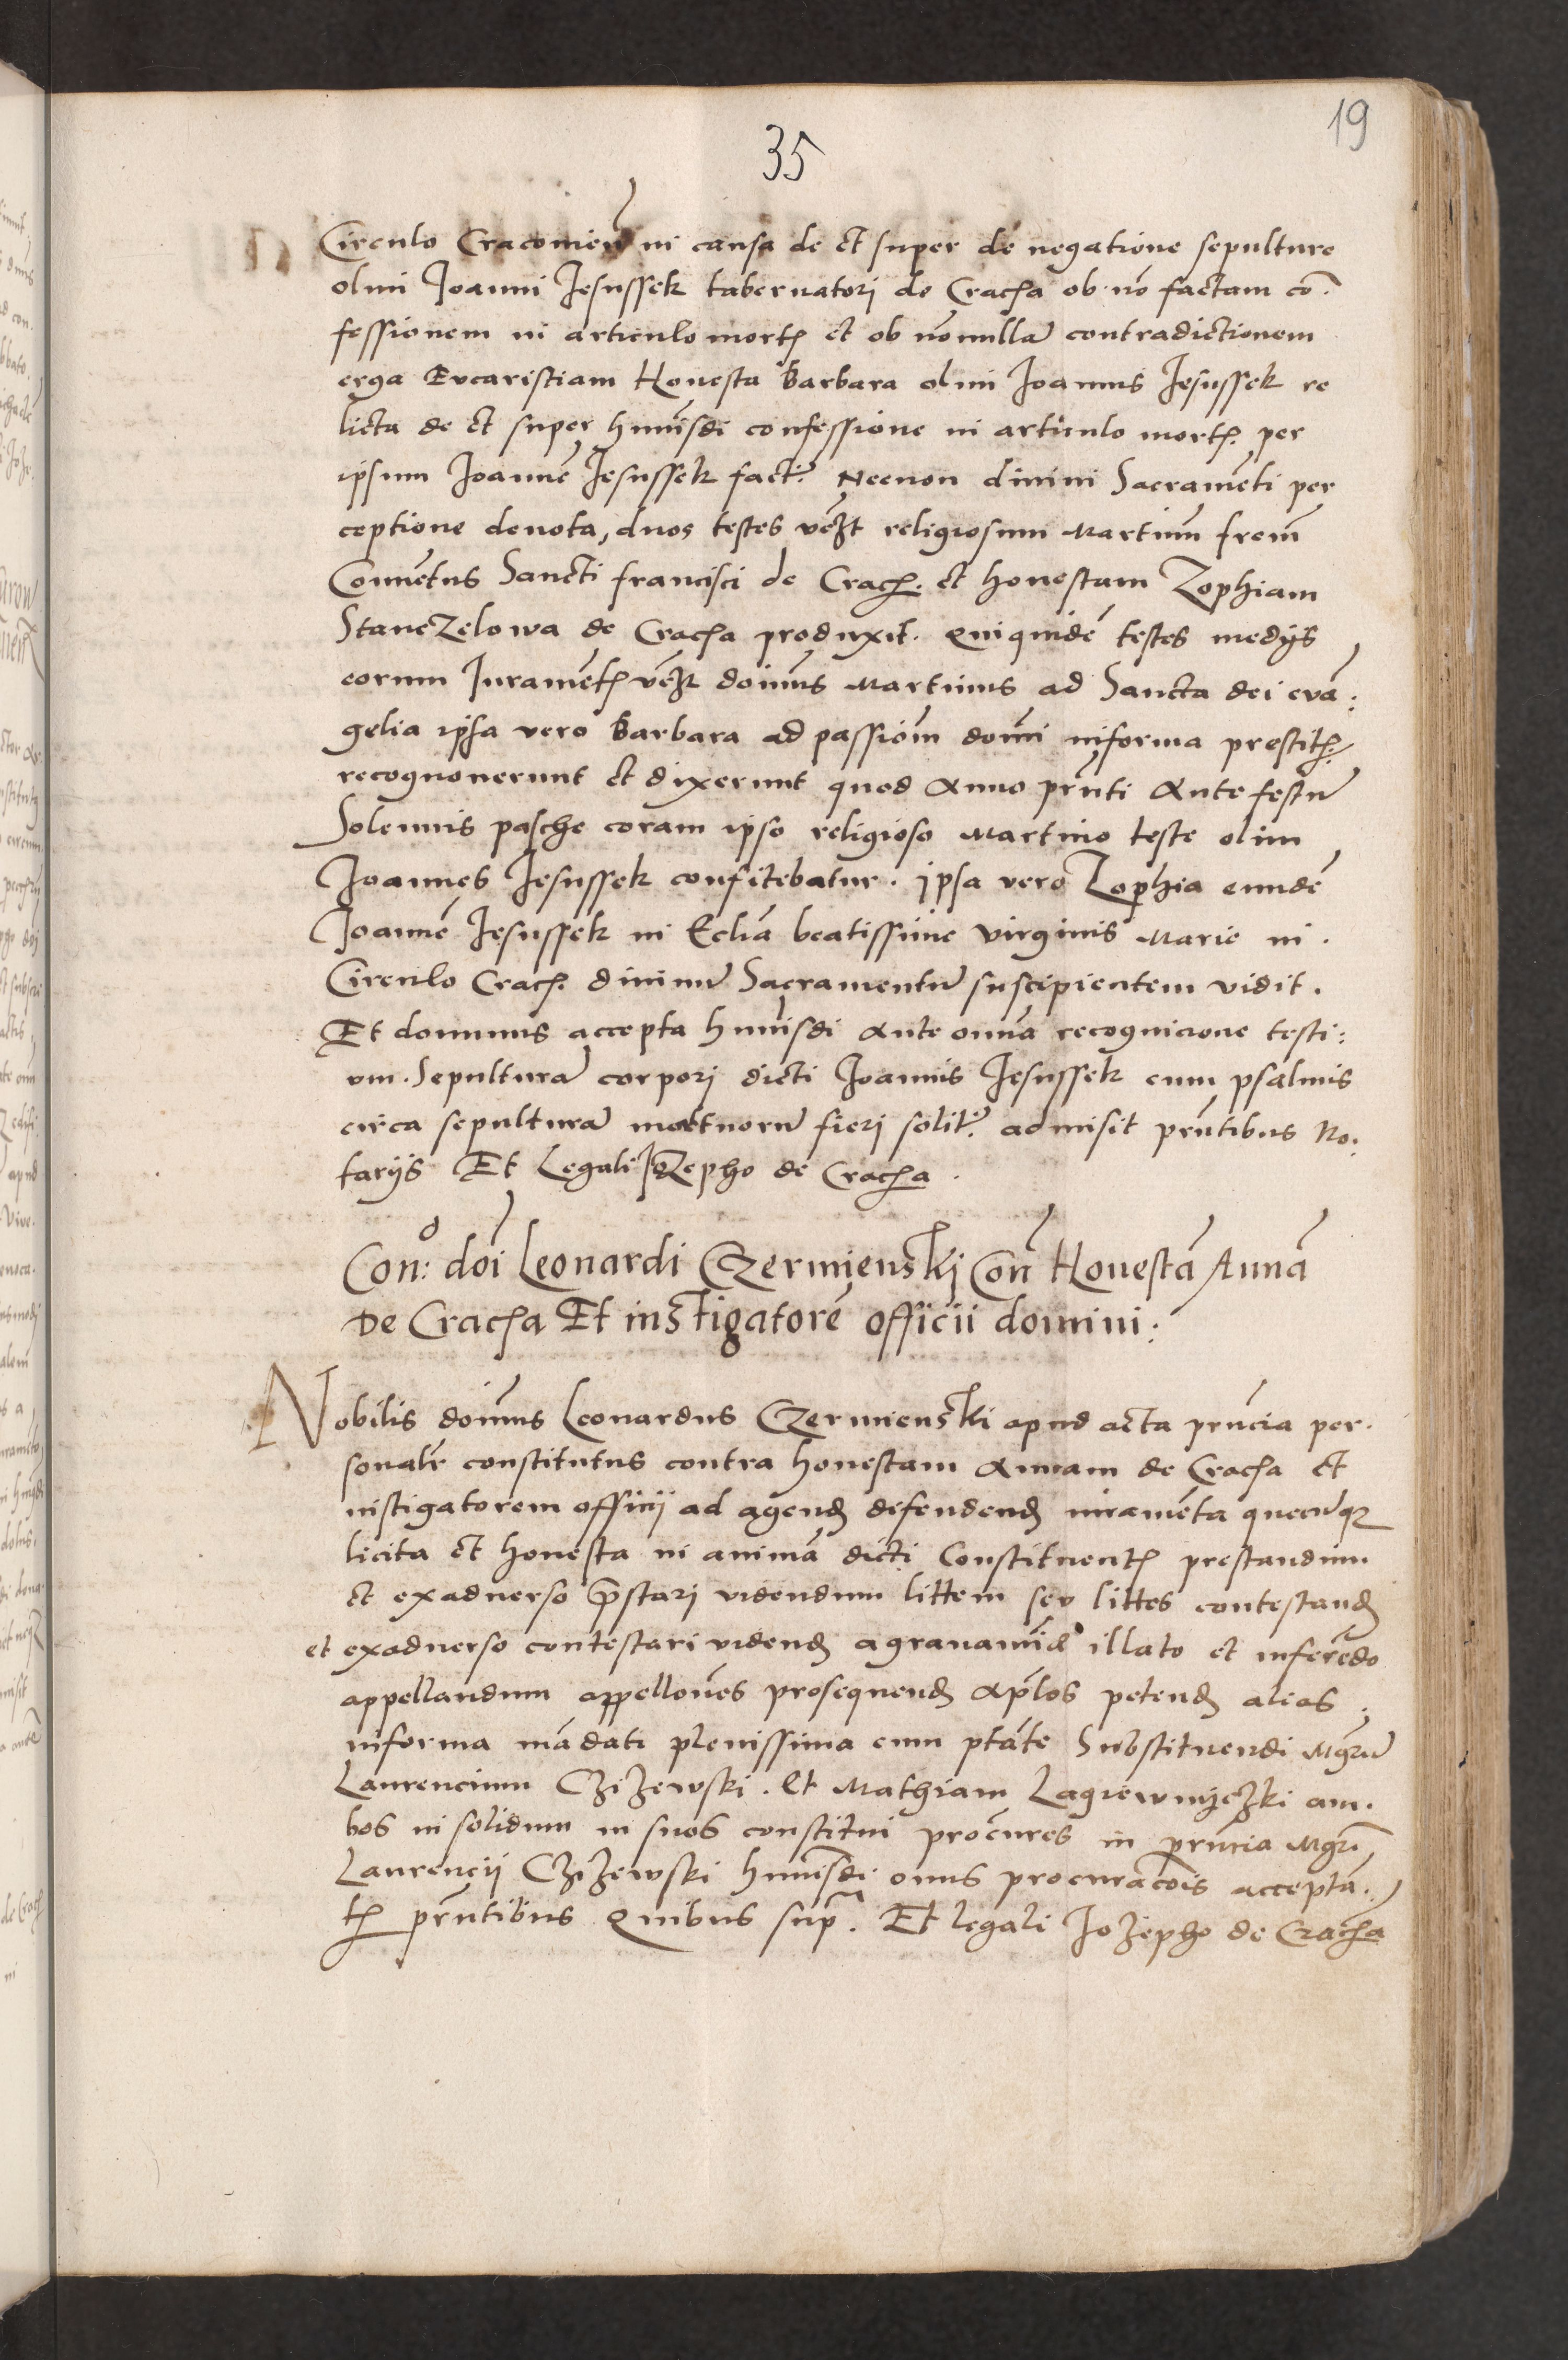 19
35
Circulo Cracouień in causa de et super de negatione sepulture
olim Joanni Jesussek tabernatori de Cracȝa ob nō factam cō.
fessionem in articulo mortꝭ et ob nōnullā contradictionem
erga Evcaristiam Honesta Barbara olim Joannis Jesussek re
licta de et super hmōi confessione in articulo mortꝭ per
ipsum Joannē Jesussek fact. Necnon diuini Sacramēti per
ceptione denota, duos testes vꝫt religiosum Martinū frem̄
Conuētus Sancti francisci de Cracȝ. et honestam Zophiam
StaneZelowa de Cracȝa produxit. Quiquidē testes medijs
eorum Juramētꝭ vꝫt domūs Martinus ad Sancta dei evā:
gelia ipsa vero Barbara ad passiōm domī informa prestitꝭ.
recognouerunt et dixerunt quod Anno prn̄ti Ante festū
Solennis pasche coram ipso religioso Martino teste olim
Joannes Jesussek confitebatur. ipsa vero Zophia eundē
Joannē Jesussek in Eccliā beatissime virginis Marie in.
Circulo Cracȝ. diuinū Sacramentū suscipientem vidit.
Et dominus accepta hmōi Ante omīa recognicione testi:
um. Sepulturā corpori dicti Joannis Jesussek cum psalmis
circa sepulturā mortuorū fieri solit. admisit prn̄tibus No.
tarijs Et Legali JoZepho de Cracȝa.
Con: doī Leonardi CZermienskj Con̄ Honestā Annā
De Cracȝa Et instigatorē officii domini:
Nobilis domūs Leonardus CZermienski apud acta prn̄cia per.
sonalr̄ constitutus contra honestam Annam de Cracȝa et
instigatorem officij ad agenđ difendenđ iuramēta quecūqꝫ
licita et honesta in animā dicti Constituentꝭ prestandum
et exaduerso p̄stari videndum littem sev littes contestanđ
et exaduerso contestari videnđ agrauamīe illato et inferēdo
appellandum appellōnes prosequenđ Ap̄los petenđ alias
informa mādati plenissima cum ptāte Substituendi Mgr̄ū
Laurencium CZiZewski. Et Mathiam Lagiewnijcȝki am.
bos in solidum in suos constitui procūres in prn̄cia Mgr̄i
Laurencij CZiZewski hmōi onus procuracōis acceptā.
tꝭ prn̄tibus Quibus sup̄. Et legali JoZepho de Cracȝa